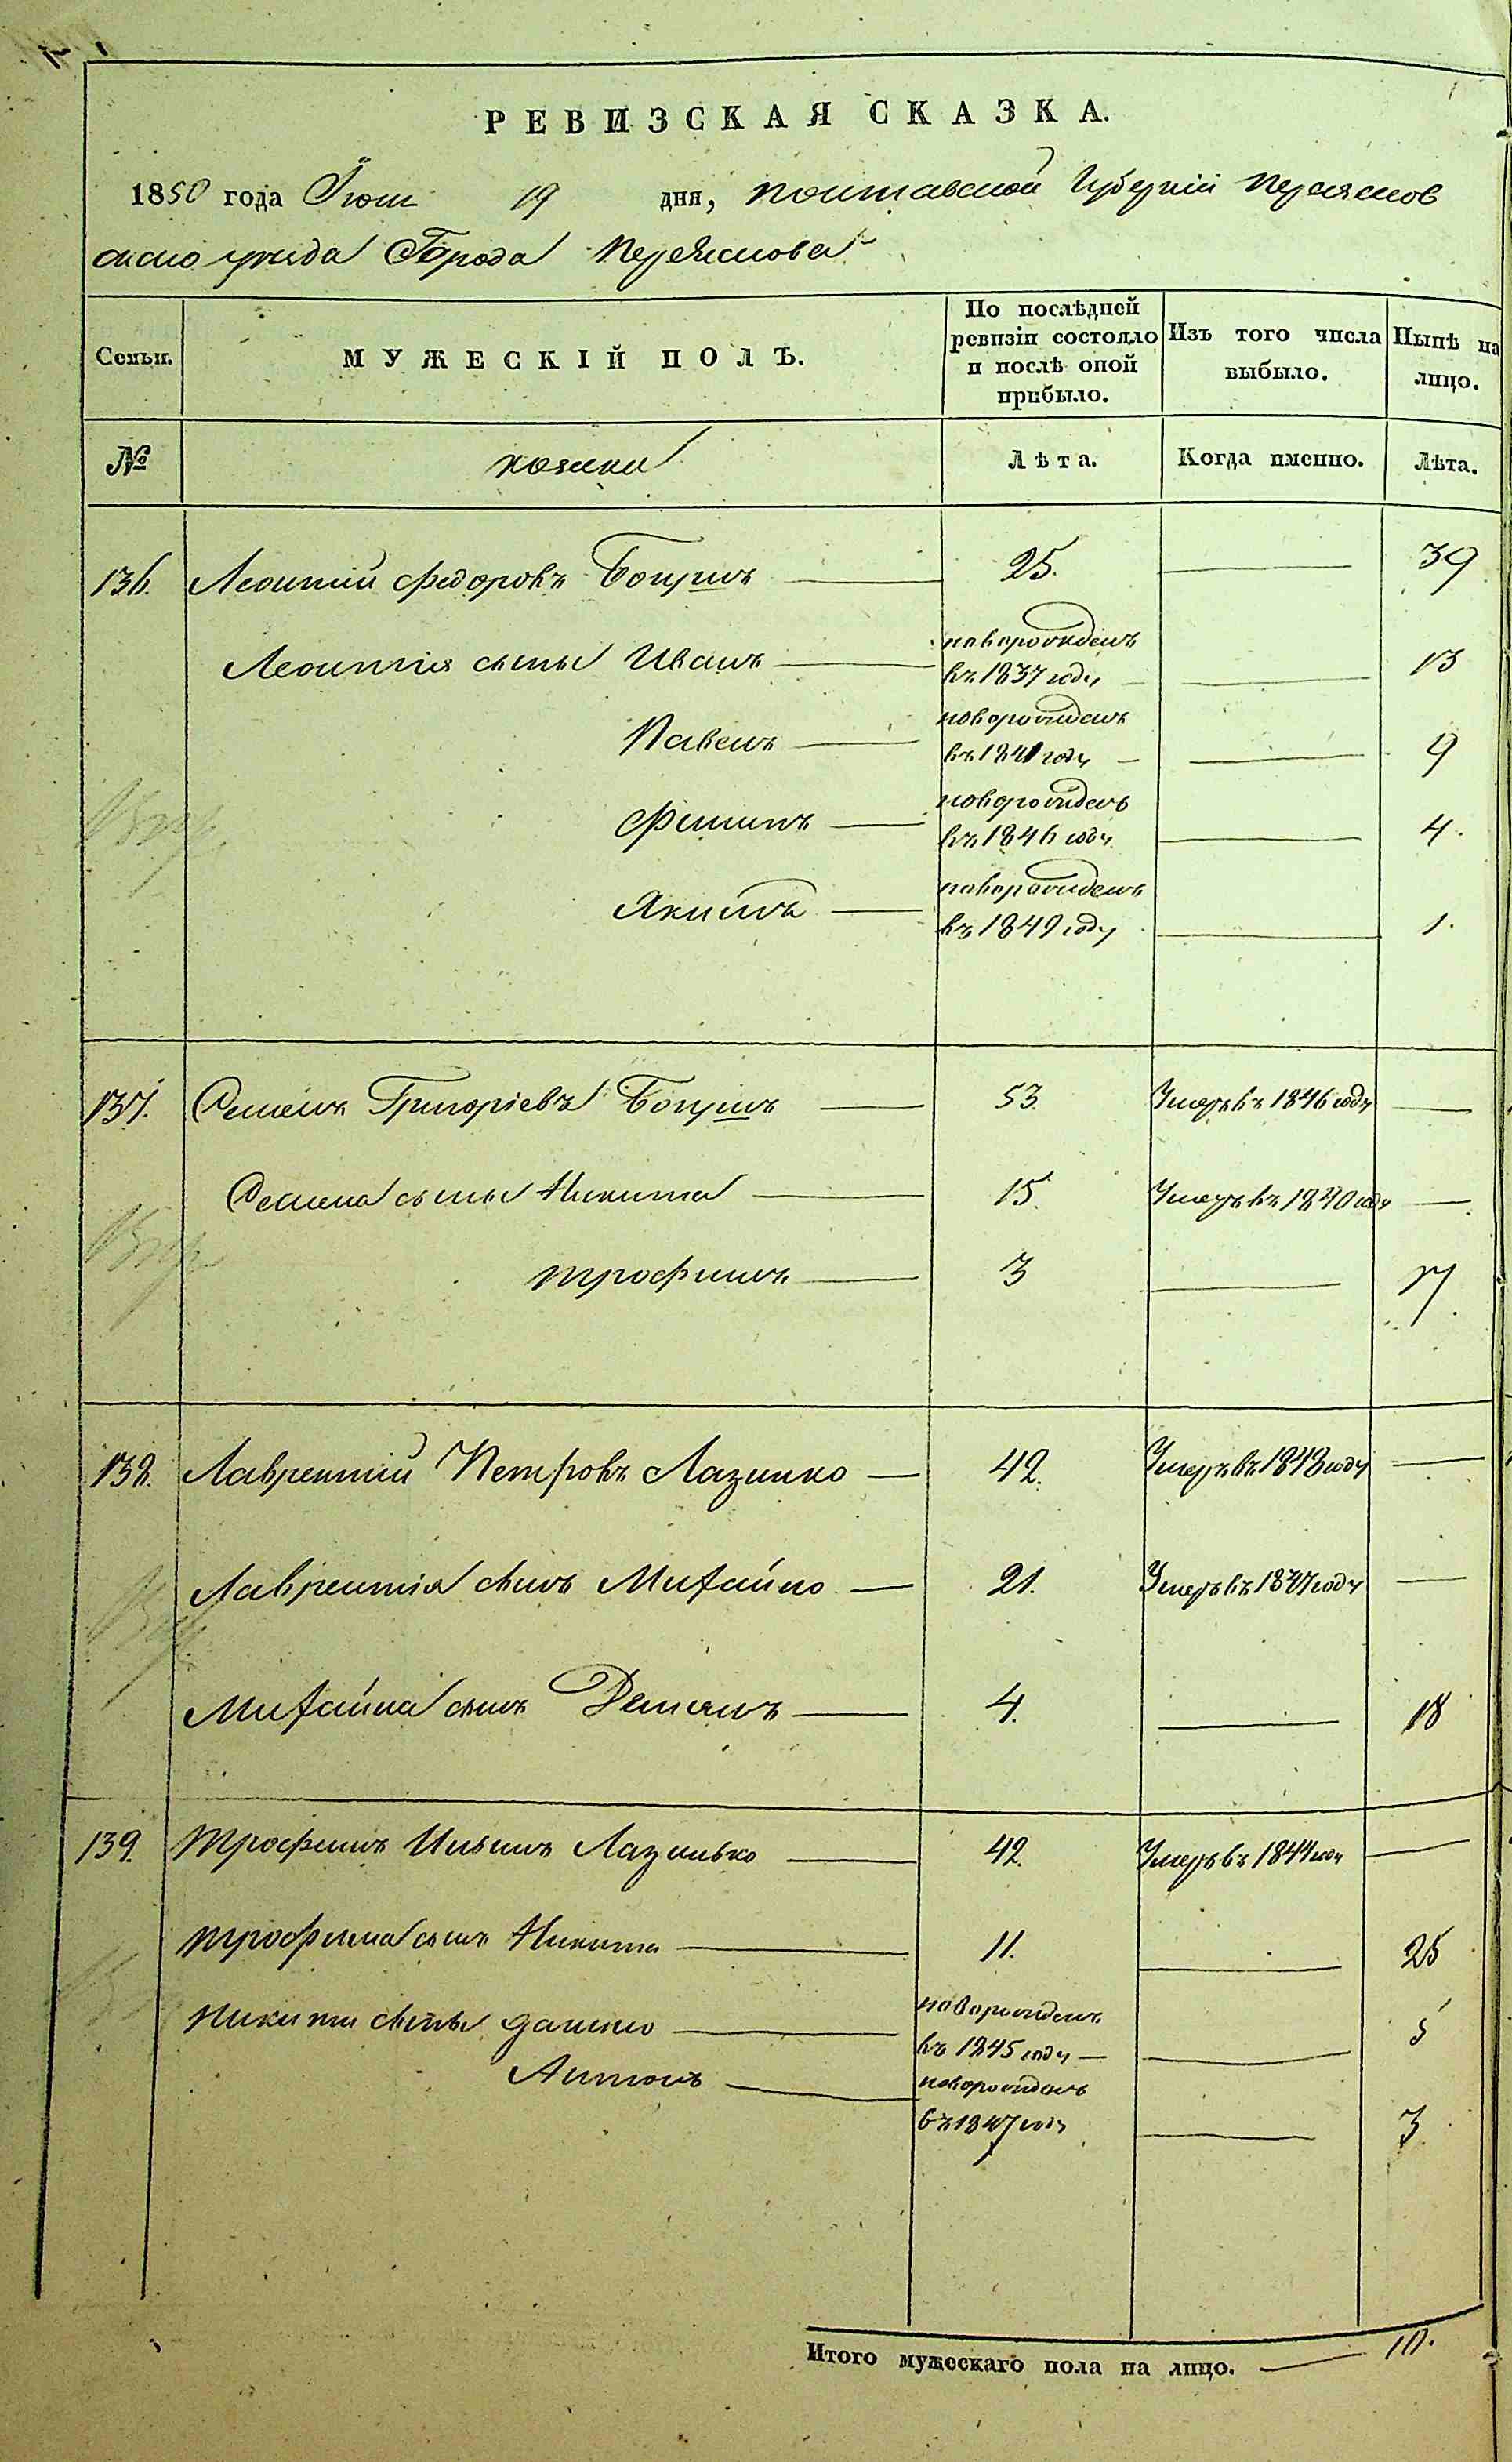 РЕВИЗСКАЯ СКАЗКА.
1850 года Іюня 19 дня, Полтавской Губерніи Переяслов
скаго уезда Города Переяслова
Семьи. МУЖЕСКІЙ ПОЛЪ. По послѣдней ревизіи состояло и послѣ оной прибыло. Изъ того числа выбыло. Нынѣ на лицо.
№ козаки Лѣта. Когда именно. Лѣта.
136. Леонтий Федоровъ 25. 39
Леонтия сыны Иванъ новорожденъ въ 1837 году 13
Павелъ новорожденъ въ 1841 году 9
Филипъ новорожденъ въ 1846 году 4.
Якимъ новорожденъ въ 1849 году 1.
137. Семенъ Григоріевъ 53. Умеръ въ 1846 году
Семена сыны Никита 15. Умеръ въ 1840 году
Трофимъ 3 17.
138. Лаврентий Петровъ Лазишко 42. Умеръ въ 1848 году
Лаврентія сынъ Михайло 21. Умеръ въ 1847 году
Михайла сынъ Демянъ 4. 18
139. Трофимъ Ильинъ 42. Умеръ въ 1844 году
Трофима сынъ Никита 11. 25
Никити сыны Данило новорожденъ въ 1845 году 5
Антонъ новорожденъ въ 1847 году 3
Итого мужескаго пола на лицо. 10.